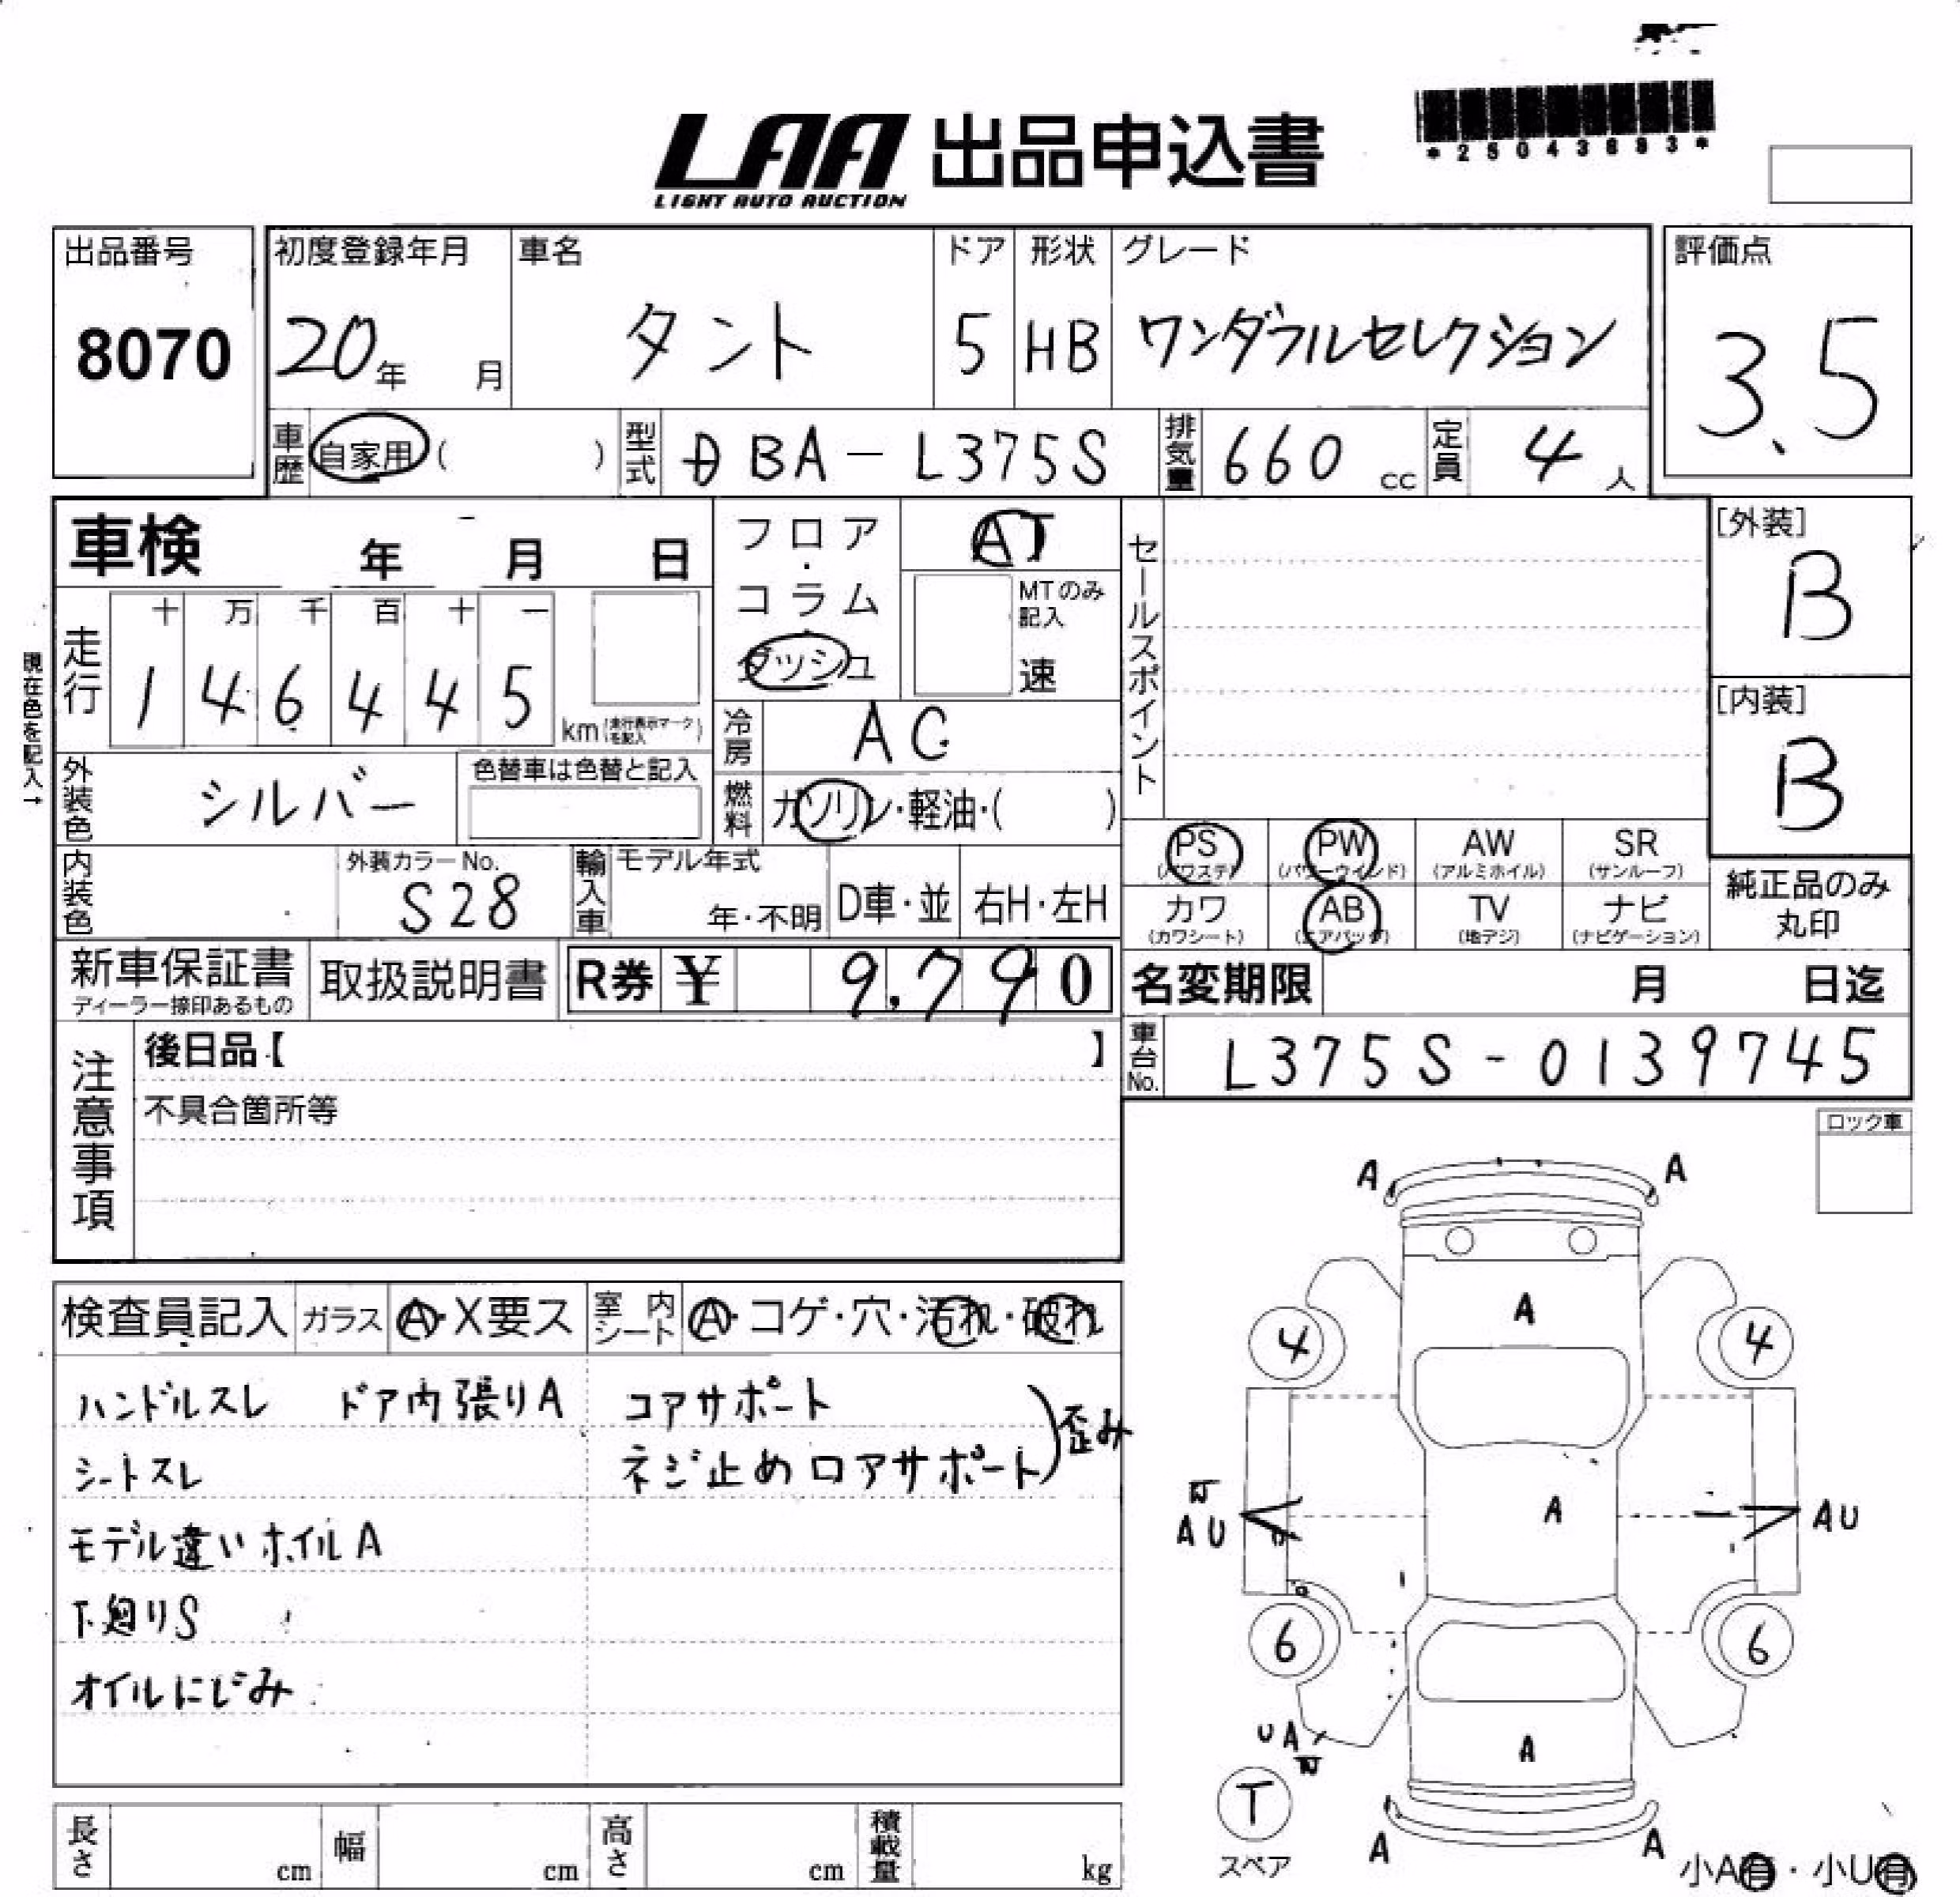 LAA 出品申込書
LIGHT AUTO AUCTION
出品番号
8070
初度登録年月
20年 月
車名
タント
ドア
5
形状
HB
グレード
ワンダフルセレクション
評価点
3.5
車歴
自家用 ( )
型式
DBA-L375S
排気量
660 cc
定員
4 人
車検 年 月 日
フロア・コラム
ダッシュ
AT
MTのみ記入
速
セールスポイント
[外装]
B
[内装]
B
現在色を記入→
走行
十 万 千 百 十 一
1 4 6 4 4 5
km (走行表示マークを記入)
冷房
AC
外装色
シルバー
色替車は色替と記入
燃料
ガソリン・軽油・( )
内装色
外装カラーNo.
S28
輸入車
モデル年式
年・不明
D車・並
右H・左H
PS (パワステ)
PW (パワーウインド)
AW (アルミホイル)
SR (サンルーフ)
カワ (カワシート)
AB (エアバッグ)
TV (地デジ)
ナビ (ナビゲーション)
純正品のみ
丸印
新車保証書
ディーラー捺印あるもの
取扱説明書
R券 ¥ 9,790
名変期限 月 日迄
車台No.
L375S-0139745
注意事項
後日品【 】
不具合箇所等
ロック車
検査員記入
ガラス
A・X要ス
室内シート
A・コゲ・穴・汚れ・破れ
ハンドルスレ ドア内張りA
シートスレ
モデル違いホイルA
下廻りS
オイルにじみ
コアサポート
ネジ止めロアサポート
歪み
A A
A
4 4
A
AU AU
6 6
UA
A
T
スペア
A A
小A有・小U有
長さ cm
幅 cm
高さ cm
積載量 kg